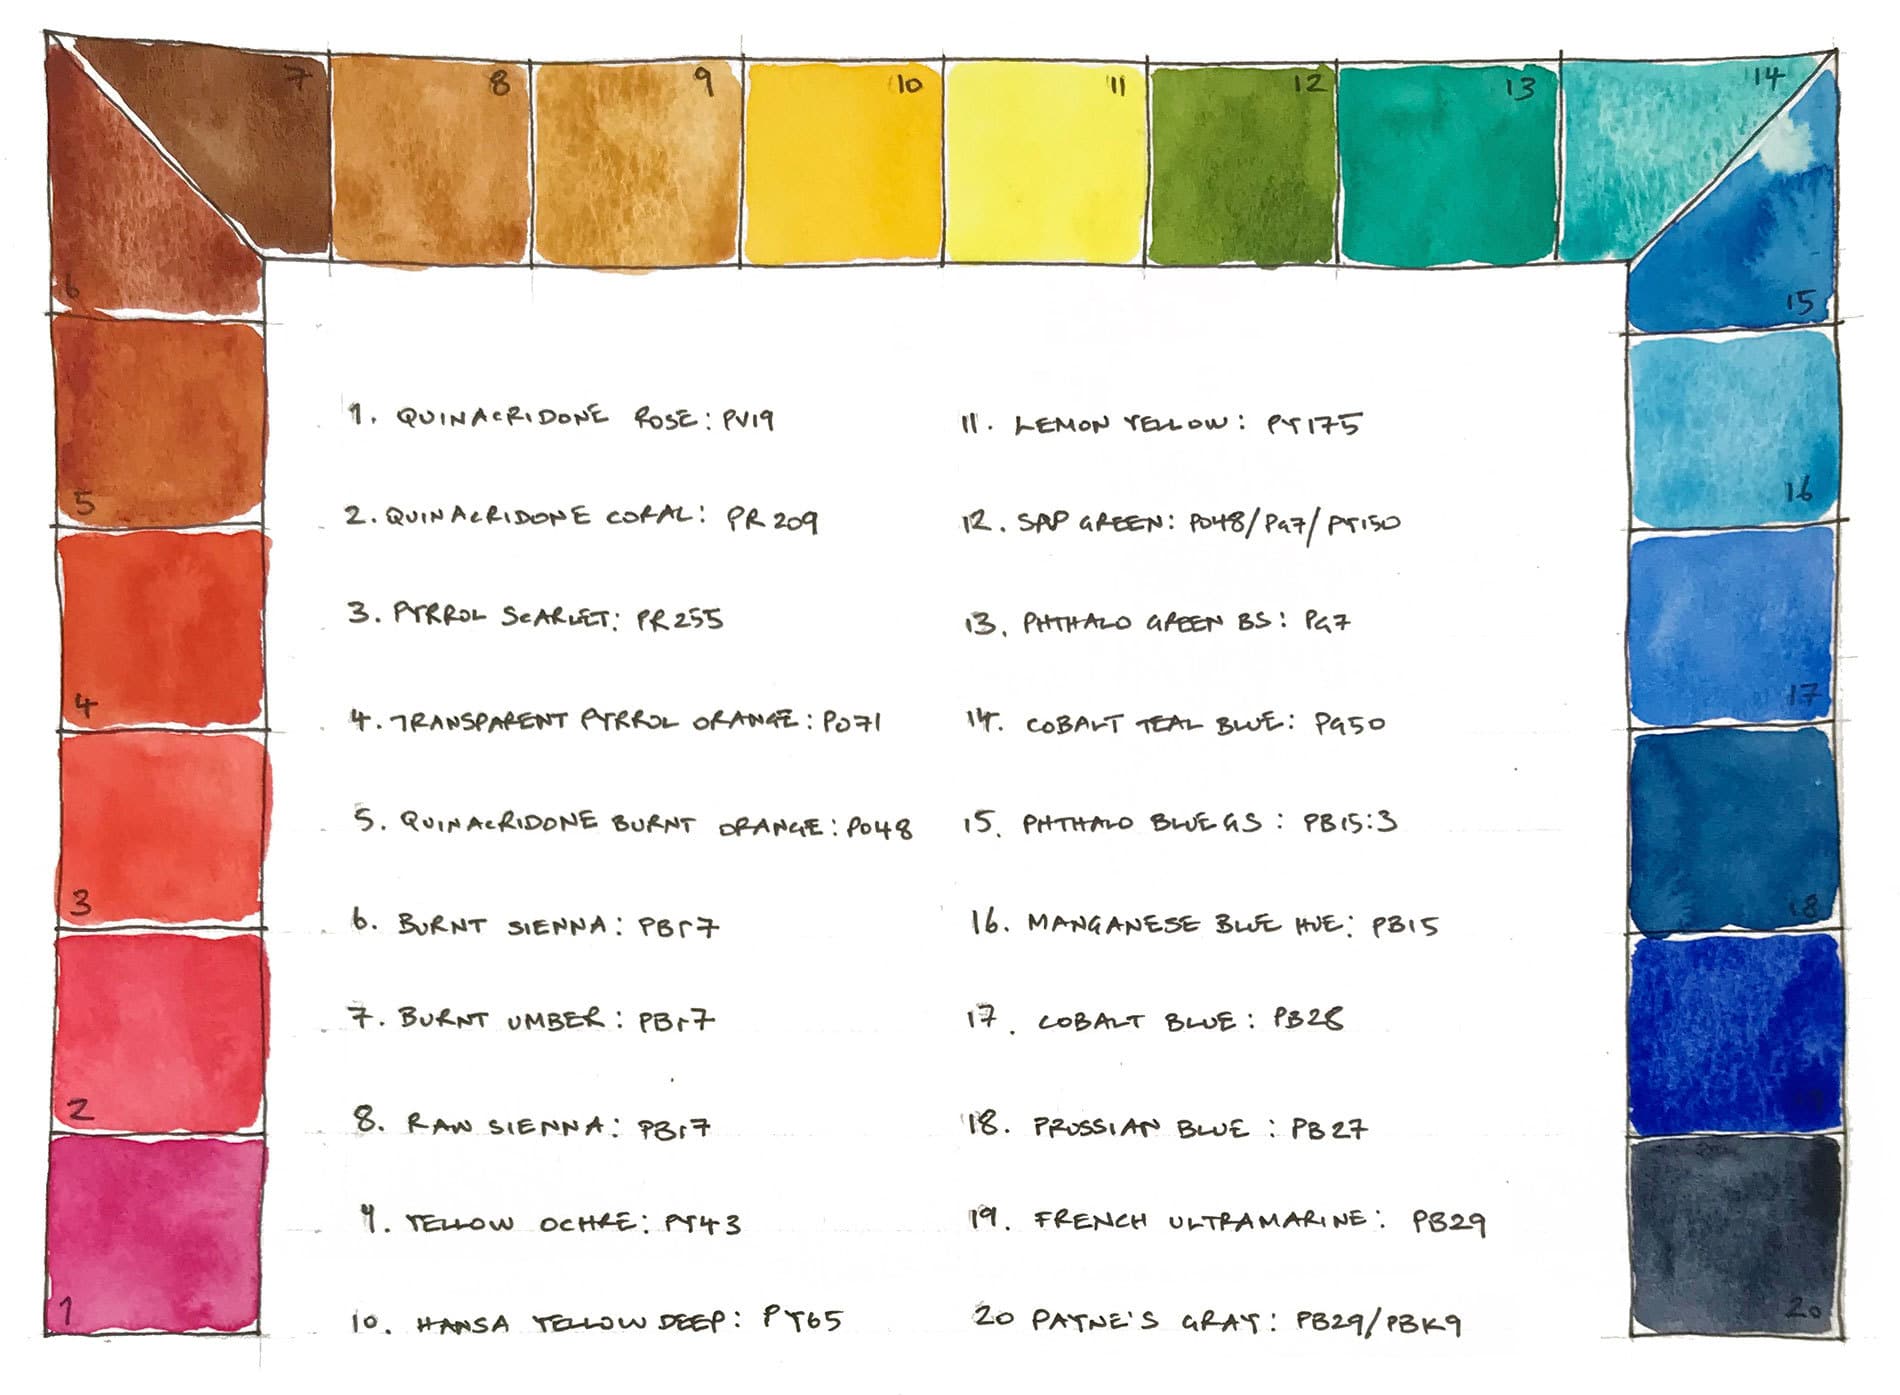 7
8
9
10
11
12
13
14
6
15
5
16
4
17
3
18
2
19
1
20
1. QUINACRIDONE ROSE: PV19
2. QUINACRIDONE CORAL: PR209
3. PYRROL SCARLET: PR255
4. TRANSPARENT PYRROL ORANGE: PO71
5. QUINACRIDONE BURNT ORANGE: PO48
6. BURNT SIENNA: PBr7
7. BURNT UMBER: PBr7
8. RAW SIENNA: PBr7
9. YELLOW OCHRE: PY43
10. HANSA YELLOW DEEP: PY65
11. LEMON YELLOW: PY175
12. SAP GREEN: PO48/PG7/PY150
13. PHTHALO GREEN BS: PG7
14. COBALT TEAL BLUE: PG50
15. PHTHALO BLUE GS: PB15:3
16. MANGANESE BLUE HUE: PB15
17. COBALT BLUE: PB28
18. PRUSSIAN BLUE: PB27
19. FRENCH ULTRAMARINE: PB29
20 PAYNE'S GRAY: PB29/PBK9